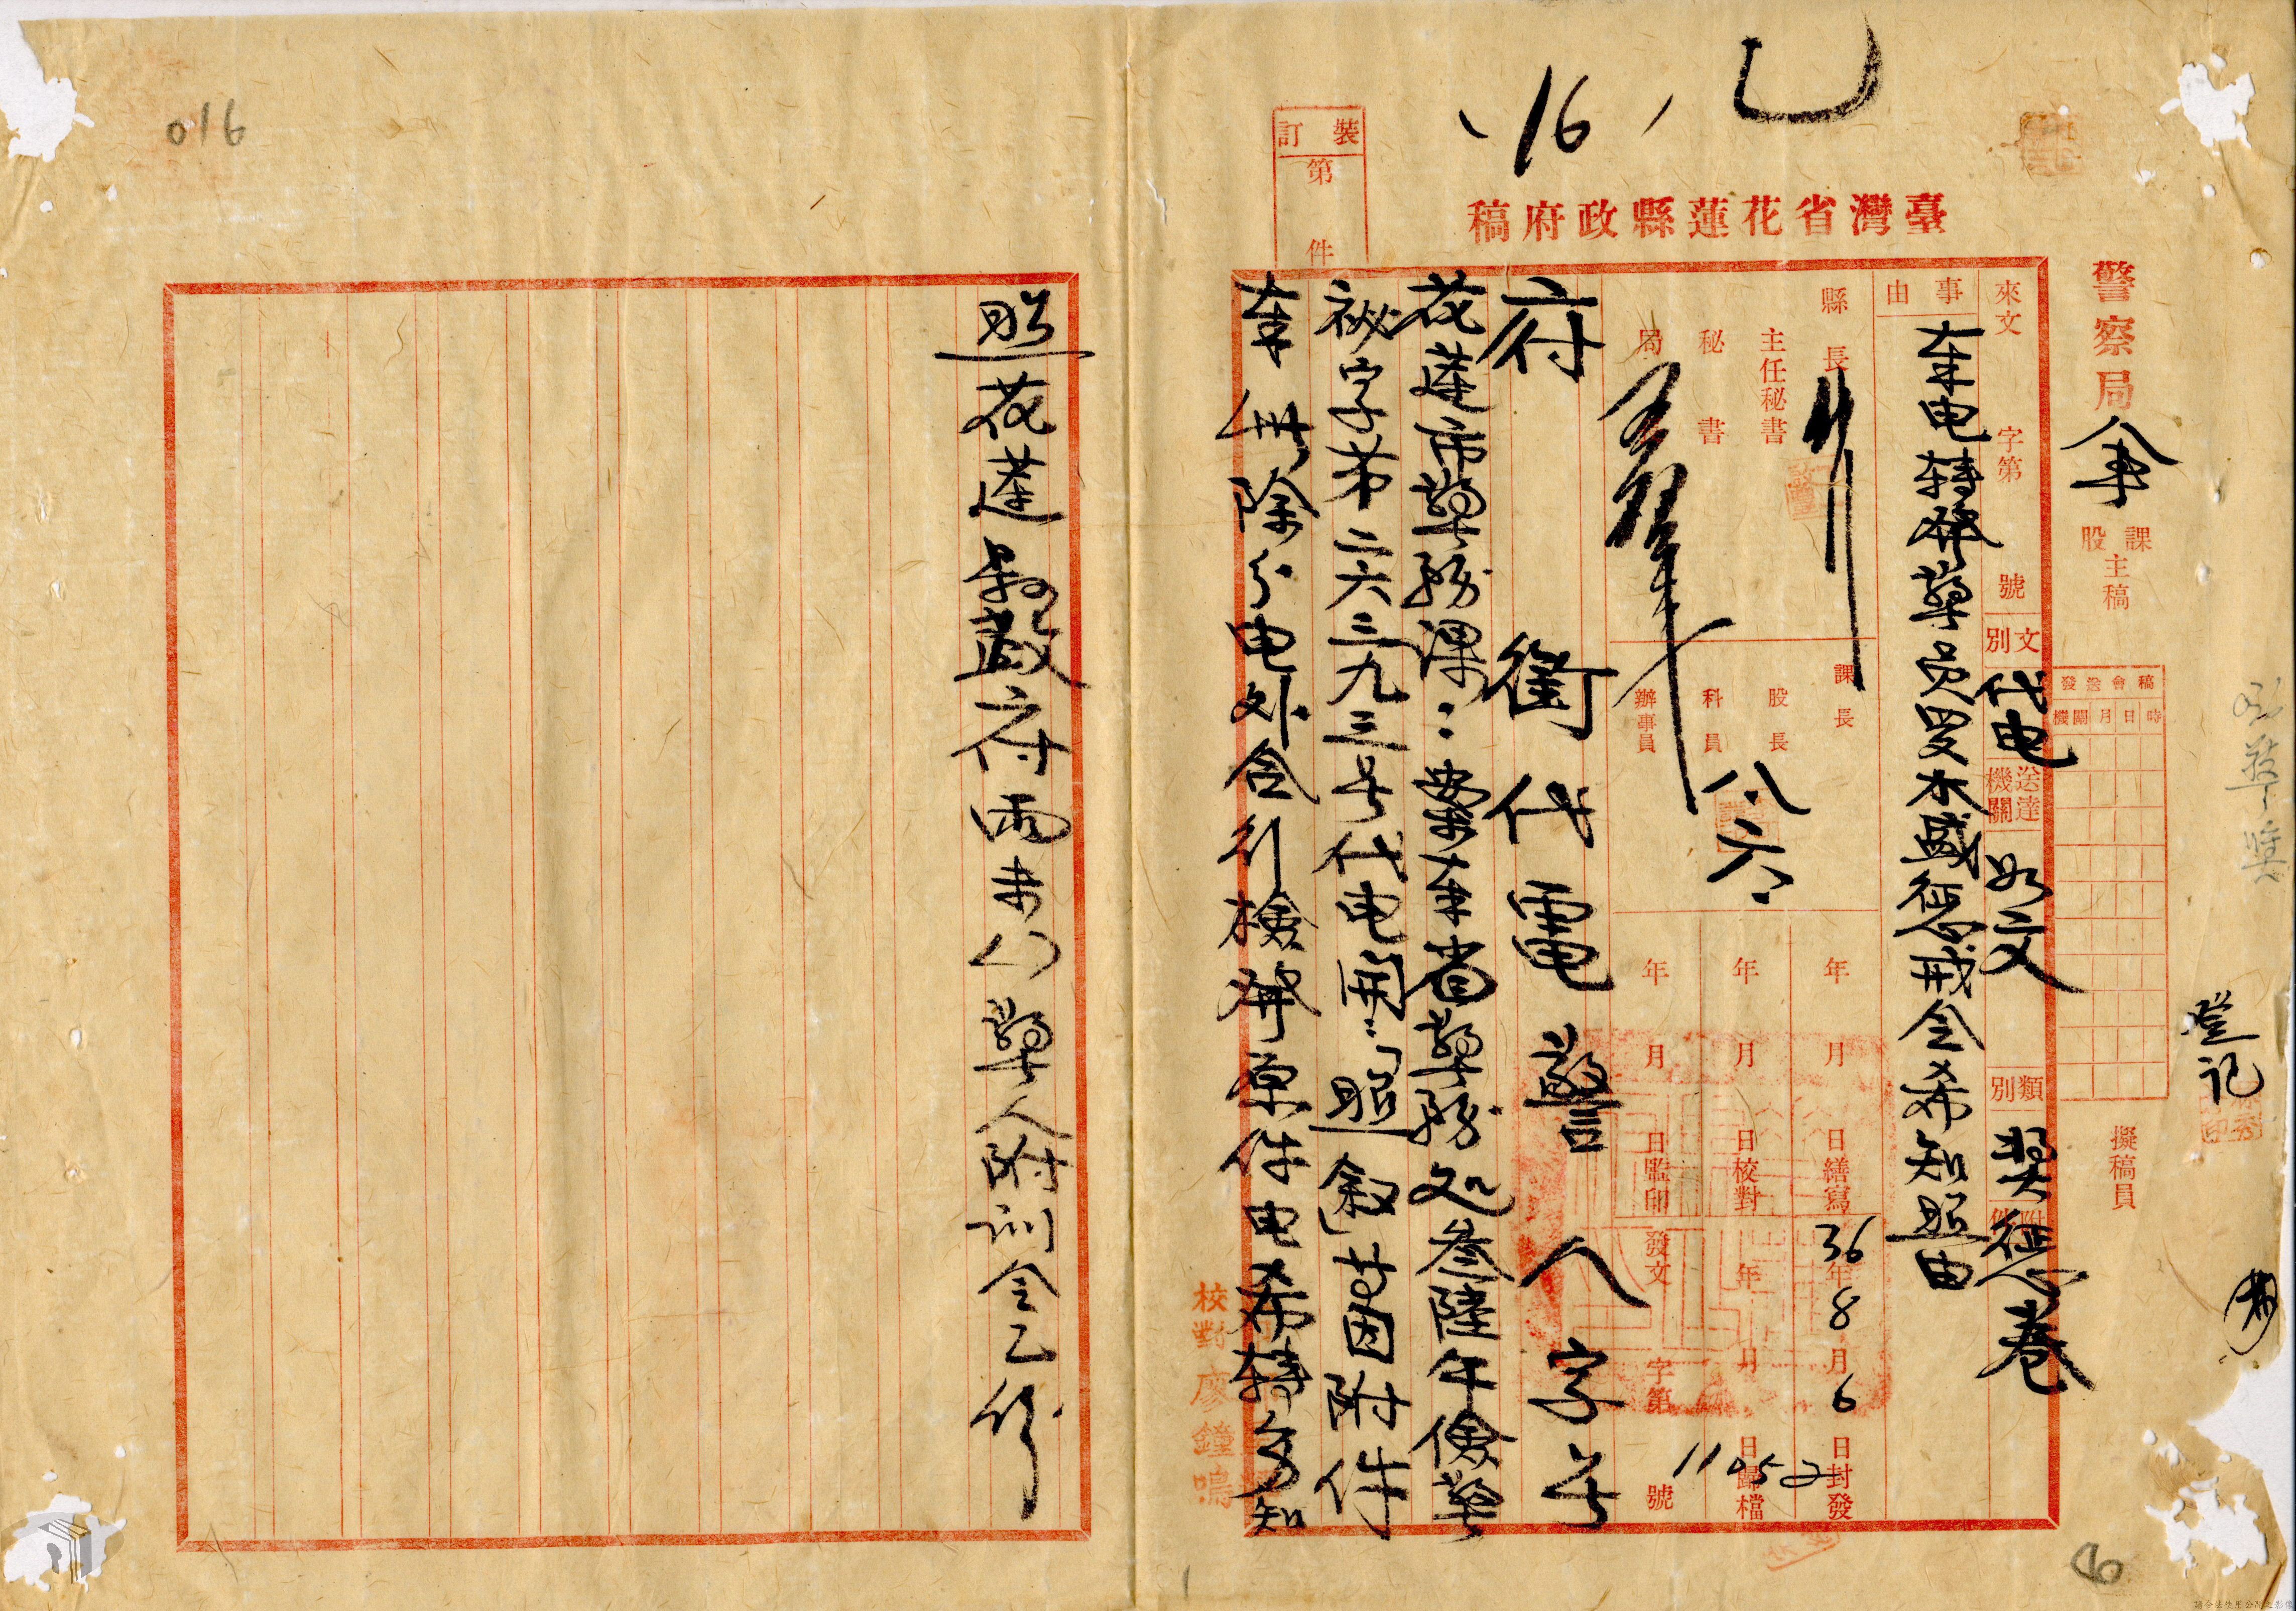 乙
16
臺灣省花蓮縣政府稿
裝訂
第 件
警察局
課股主稿
擬稿員
登記
稿會送發
時日月關機
來文 字第 號
文別 代电
送達機關 如文
類別 奖懲卷
附件
事由
奉电轉發警員 木盛懲戒令希知照由
縣長
主任秘書
秘書
局
課長
股長
科員
辦事員
八六
年月日繕寫
年月日校對
年月日監印
36年8月6日封發
年月日歸檔
發文 字第 11052 號
府銜代電 警人字号
花蓮市警務課：案奉省警務処叁陸午儉警
祕字第二六三九三号代电開：「照叙」等因附件
奉此除分电外合行檢發原件电希轉知
照花蓮縣政府 未 警人附訓令乙件
校對廖鐘鳴
016